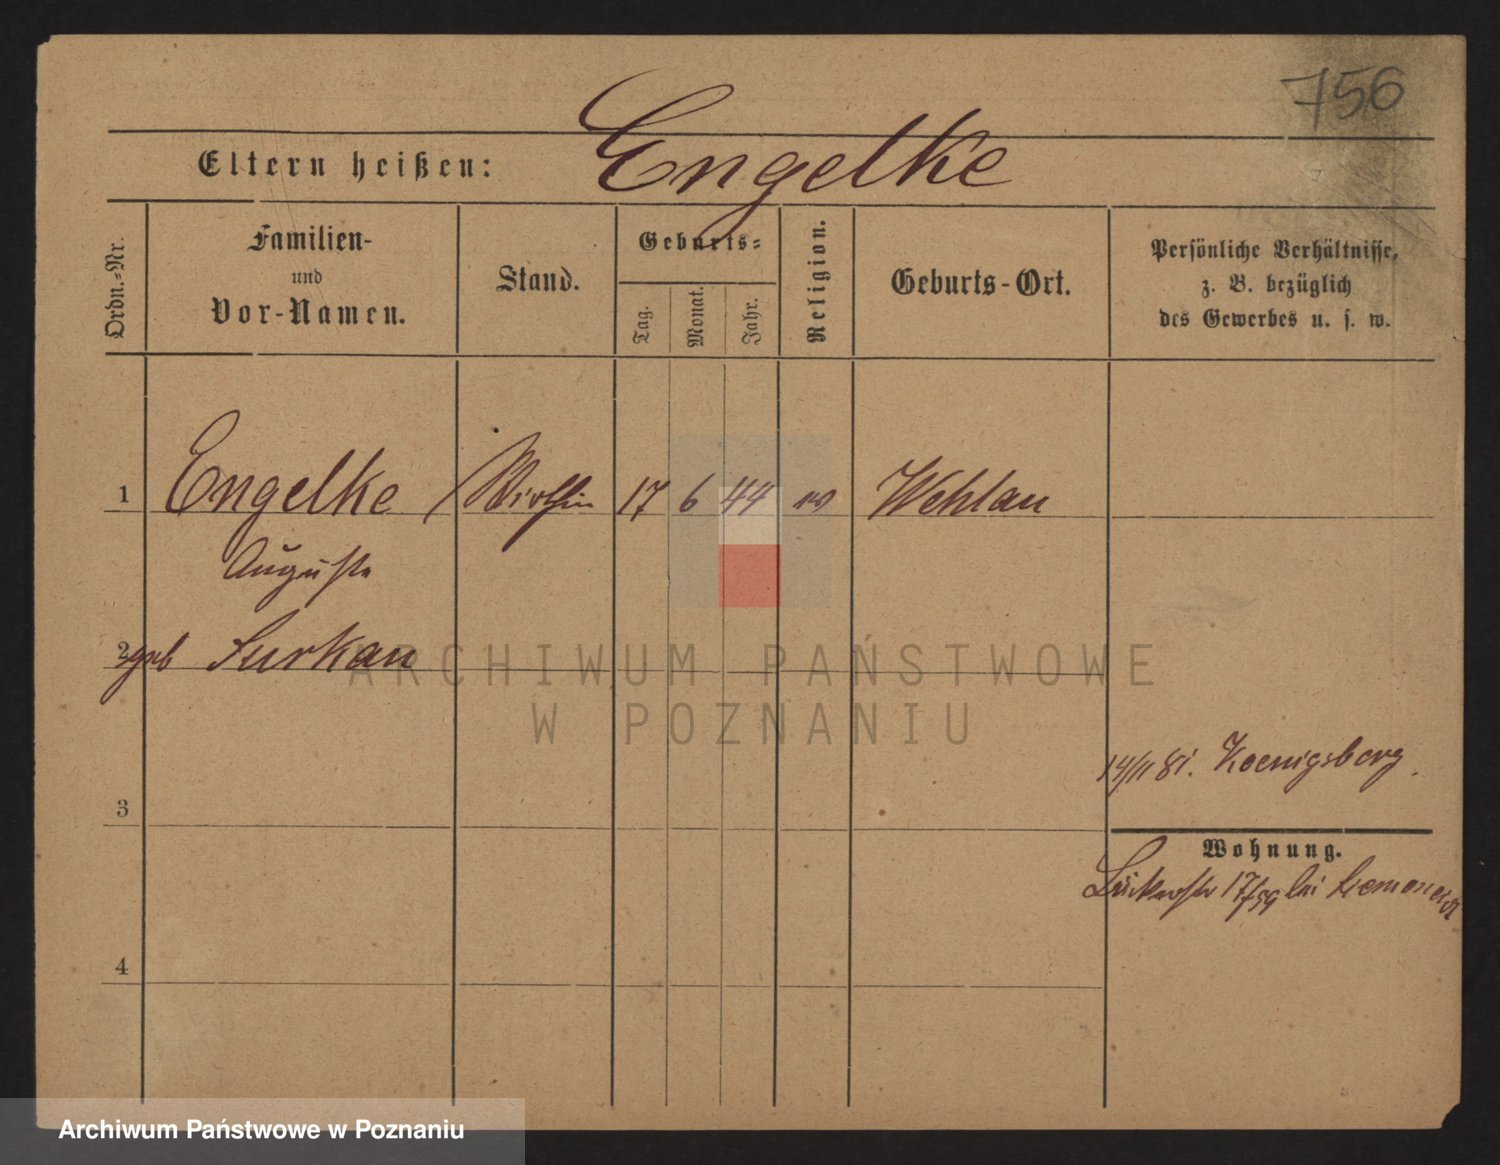 756
Eltern heißen: Engelke
Ordn.-Nr.
Familien-
und
Vor-Namen.
Stand.
Geburts-
Tag.
Monat.
Jahr.
Religion.
Geburts-Ort.
Persönliche Verhältnisse,
z. B. bezüglich
des Gewerbes u. s. w.
1 Engelke 17 6 44 ev Wehlau
Auguste
2 geb Surkau
ARCHIWUM PAŃSTWOWE
W POZNANIU
14/11 81. Koenigsberg.
3
Wohnung.
17/59 bei
4
Archiwum Państwowe w Poznaniu